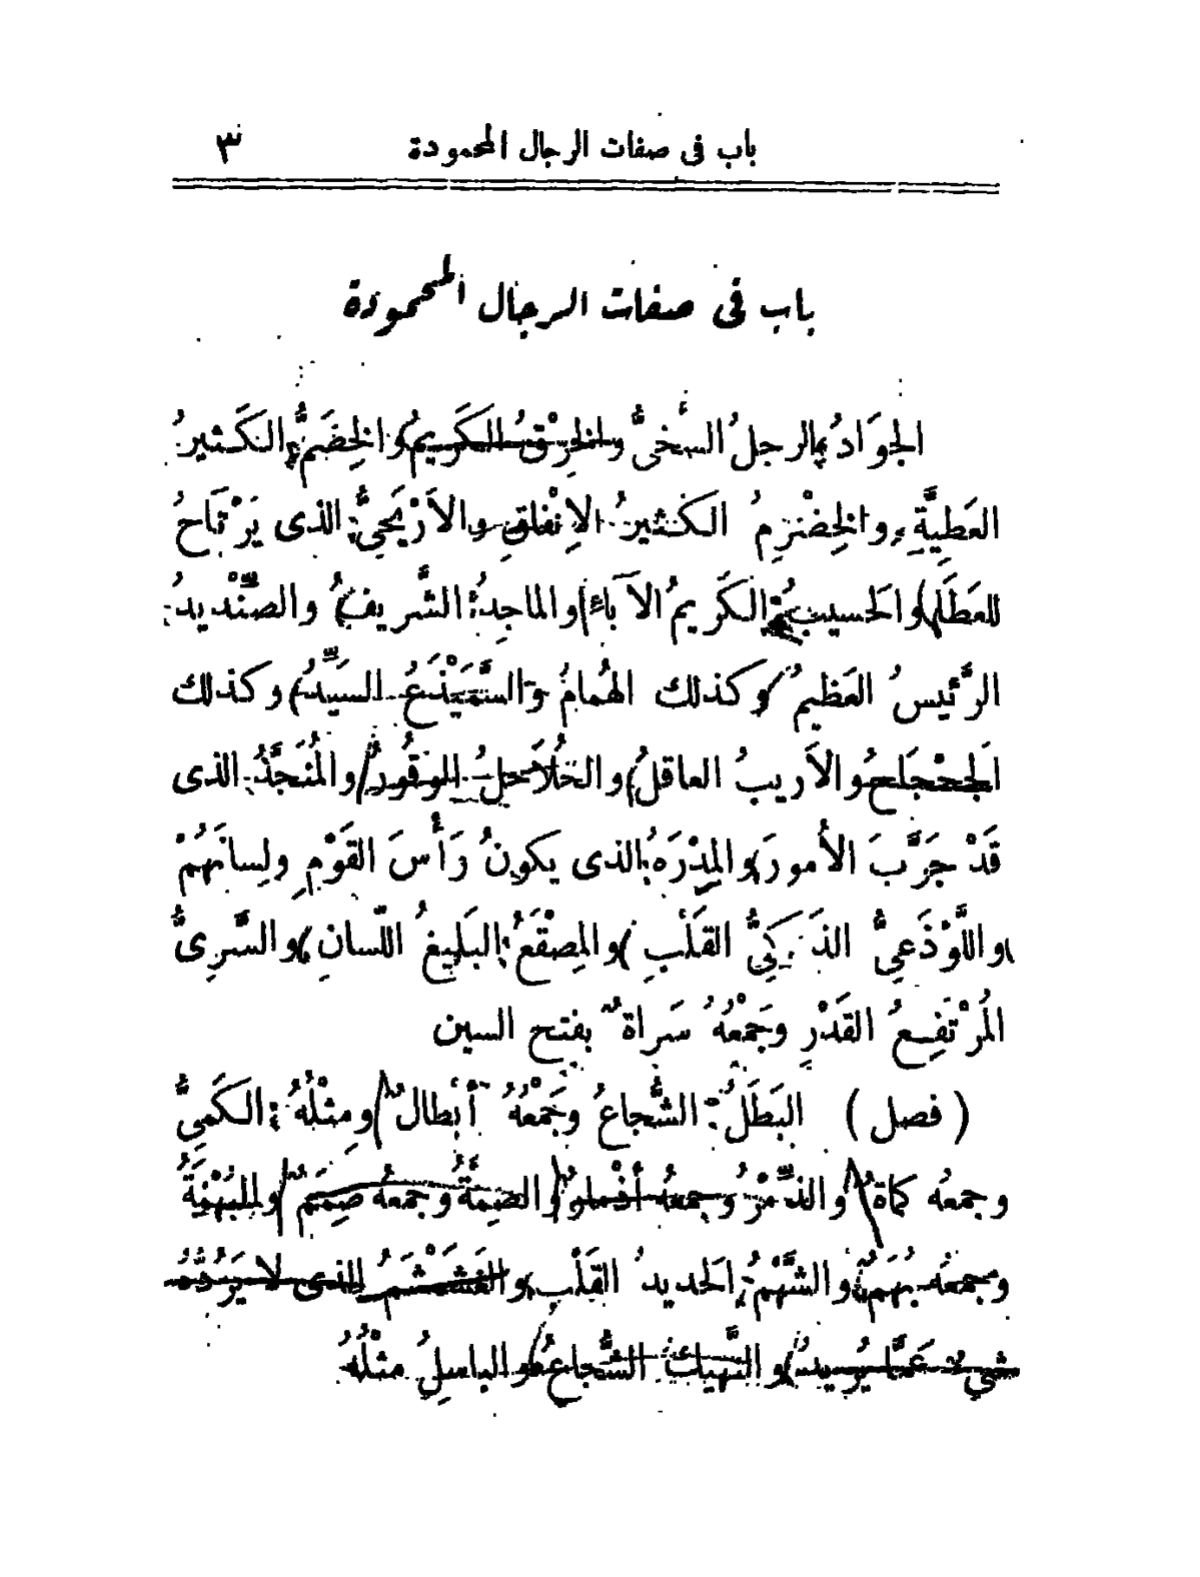 باب فى صفات الرجال المحمودة ٣
باب فى صفات الرجال المحمودة
الجَوَادُ الرجلُ السَّخىُّ والخِرْقُ الكَرِيمُ والخِضَمُّ الكَثيرُ
العَطِيَّةِ والخِضْرِمُ الكَثيرُ الاِنْفاقِ والأَرْيَحِىُّ الذى يَرْتَاحُ
للعَطَاءِ والحَسيبُ الكَرِيمُ الآباءِ والماجِدُ الشَّرِيفُ والصِّنْديدُ
الرَّئيسُ العَظيمُ وكذلك الهُمامُ والسَّمَيْذَعُ السَيِّدُ وكذلك
الجَحْجَاحُ والأَرِيبُ العاقلُ والحُلاَحِلُ الوَقُورُ والمُنَجَّذُ الذى
قَدْ جَرَّبَ الأُمورَ والمِدْرَهُ الذى يكونُ رَأْسَ القَوْمِ ولِسانَهُمْ
واللَّوْذَعِىُّ الذَكِىُّ القَلْبِ والمِصْقَعُ البَلِيغُ اللّسانِ والسَّرِىُّ
المُرْتَفِعُ القَدْرِ وجَمْعُهُ سَراةٌ بفتح السين
( فصل ) البَطَلُ الشُّجاعُ وجَمْعُهُ أَبْطالٌ ومِثْلُهُ الكَمِىُّ
وجمعُه كماةٌ والذِّمْرُ وجمعُهُ أَذْمارٌ والصِّمَّةُ وجمعُهُ صِمَمٌ والبُهْمَةُ
وجمعُه بُهَمٌ والشَّهْمُ الحَديدُ القَلْبِ والغَشَمْشَمُ الذى لا يَرُدُّهُ
شىءٌ عَمَّا يُريدُ والنَّهيكُ الشُّجاعُ والباسِلُ مثْلُهُ